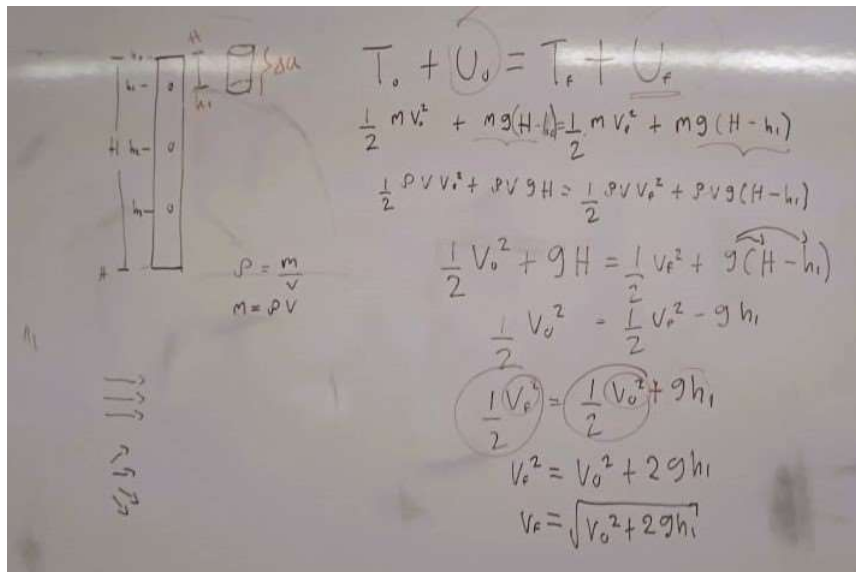 H
h₁
Δu
h₁ -
H h₂ -
h₃ -
H
ρ = m/V
m = ρV
T₀ + U₀ = T_f + U_f
1/2 mV₀² + mg(H - h₀) = 1/2 mV_f² + mg(H - h₁)
1/2 ρVV₀² + ρVgH = 1/2 ρVV_f² + ρVg(H - h₁)
1/2 V₀² + gH = 1/2 V_f² + g(H - h₁)
1/2 V₀² = 1/2 V_f² - gh₁
1/2 V_f² = 1/2 V₀² + gh₁
V_f² = V₀² + 2gh₁
V_f = √(V₀² + 2gh₁)